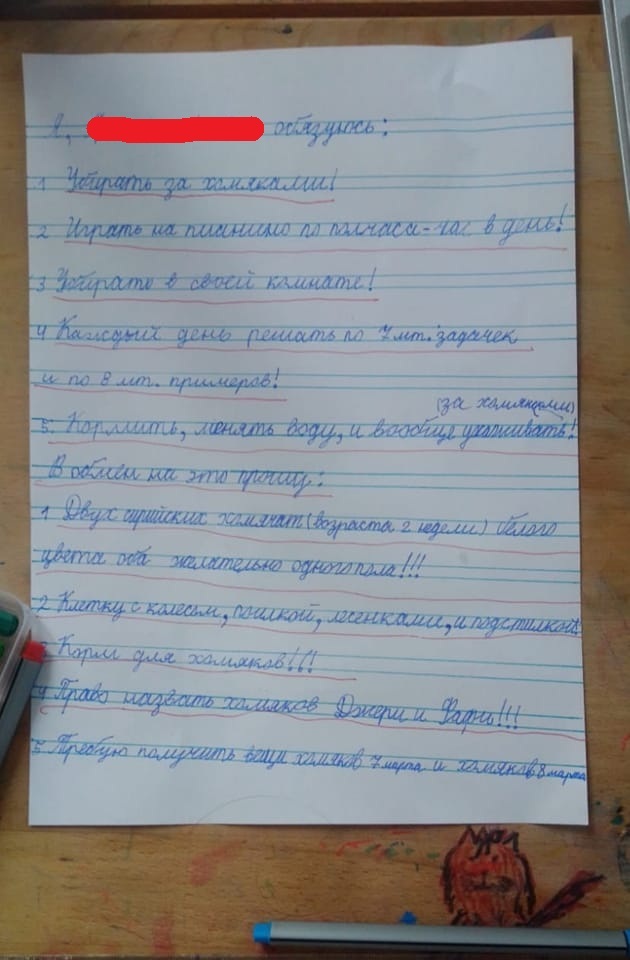 Я, обязуюсь:
1 Убирать за хомяками!
2 Играть на пианино по полчаса-час в день!
3 Убирать в своей комнате!
4 Каждый день решать по 7 мт. задачек
и по 8 мт. примеров!
(за хомяками)
5. Кормить, менять воду, и вообще ухаживать!
В обмен на это прошу:
1 Двух сирийских хомячат (возраста 2 недели) белого
цвета оба желательно одного пола!!!
2 Клетку с колесом, поилкой, лесенками, и подстилкой!
3 Корм для хомяков!!!
4 Право назвать хомяков Джери и !!!
5 Требую получить вещи хомяков 7 марта и хомяков 8 марта